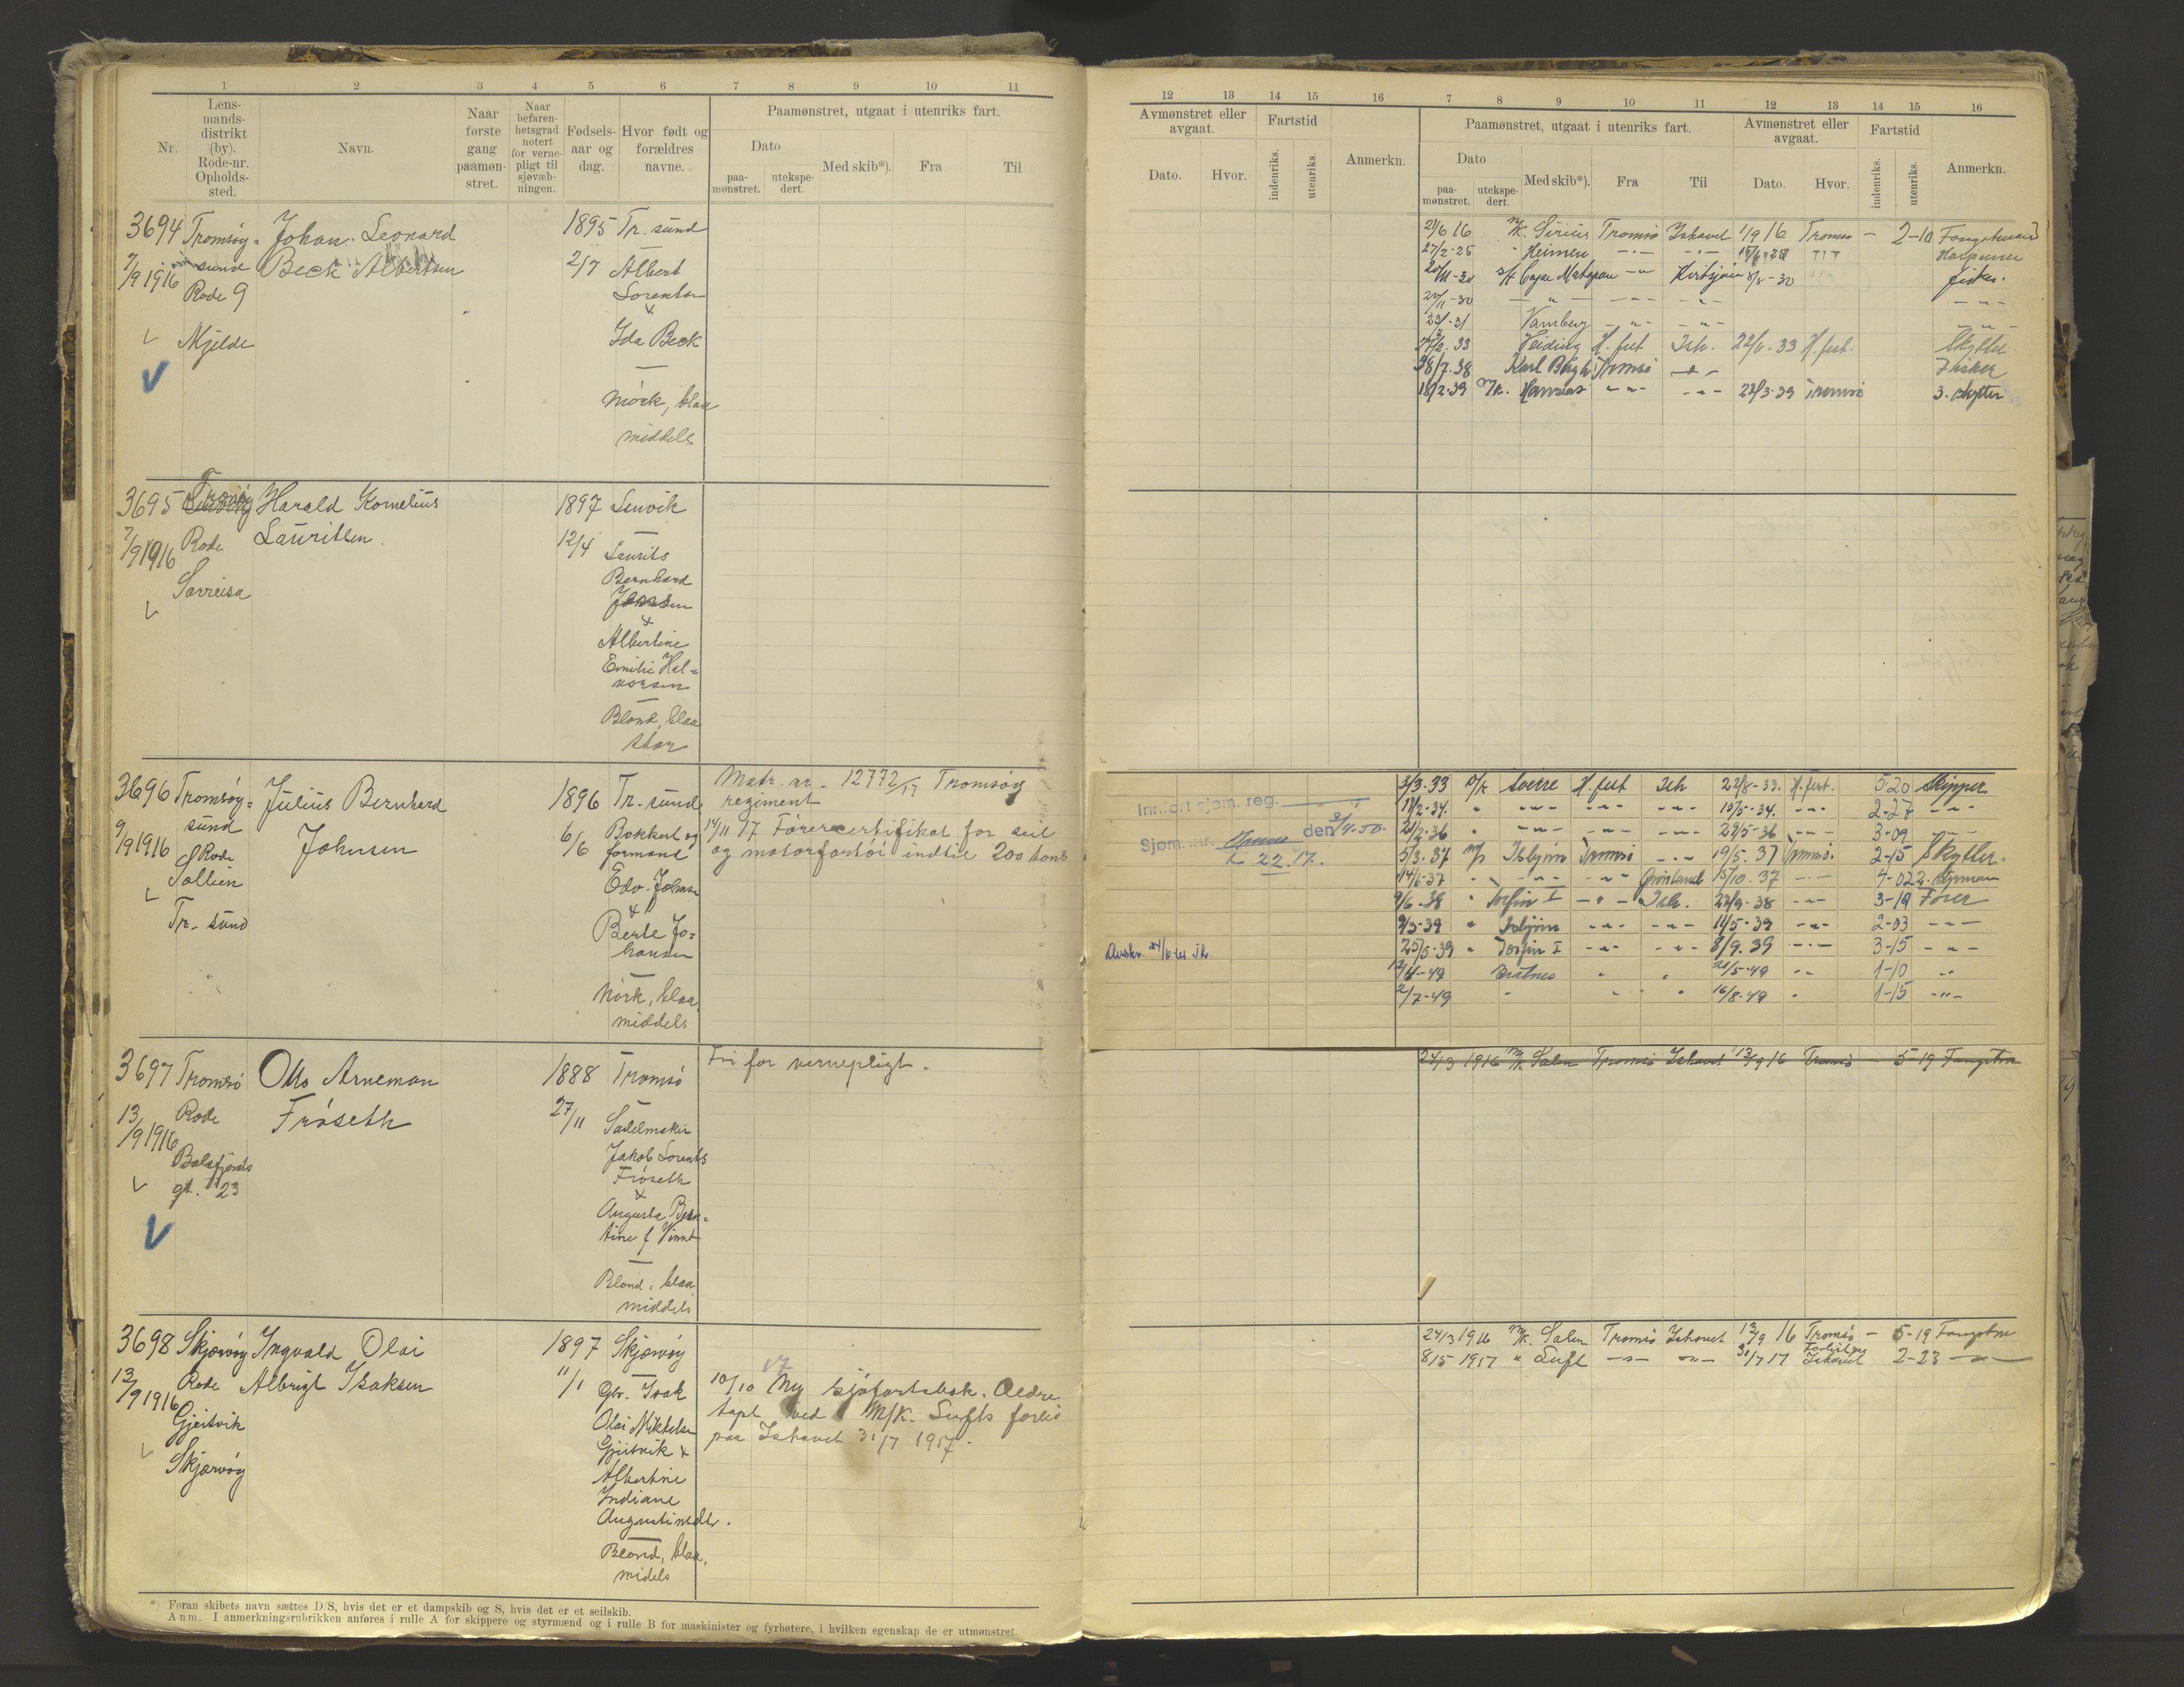 1 2 3 4 5 6 7 8 9 10 11
Nr.
Lens-
mands-
distrikt
(by).
Rode-nr.
Opholds-
sted.
Navn.
Naar
første
gang
paamøn-
stret.
Naar
befaren-
hetsgrad
notert
for verne-
pligt til
sjøvæb-
ningen.
Fødsels-
aar og
dag.
Hvor født og
forældres
navne.
Paamønstret, utgaat i utenriks fart.
Dato
paa-
mønstret.
utekspe-
dert.
Med skib*).
Fra
Til
3694 Tromsøy- Johan Leonard 1895 Tr. sund
7/9 1916 sund Beck Albertsen 2/7 Albert
Rode 9 Lorentsen
&
Mjelde Ida Beck
Mörk, blaa
middels
3695 Tromsøy Harald Kornelius 1897 Lenvik
7/9 1916 Rode Lauritsen 12/4 Laurits
Sørreisa Bernhard
Jensen
&
Albertine
Emilie Hal-
vorsen
Blond, blaa
stor
3696 Tromsøy- Julius Bernhard 1896 Tr. sund Matr. nr. 12772/17 Tromsøy
sund Johnsen regiment
9/9 1916 Rode 6/6 14/11 17 Førercertifikat for seil
formand og motorfartøi indtil 200 tons
Sollien Edv. Johnsen
&
Tr. sund Berte Jo-
hansen
Mörk, blaa
middels
3697 Tromsø Otto Arneman 1888 Tromsø Fri for vernepligt.
13/9 1916 Rode Frøseth 27/11 Sadelmaker
Balsfjords Jakob Lorents
gt. 23 Frøseth
&
Augusta Bern-
tine f
Blond, blaa
middels
3698 Skjærvøy Ingvald Olai 1897 Skjærvøy
13/9 1916 Rode Albrigt Isaksen 11/1 Gbr. Isak 10/10 17 Ny sjøfartsbok. Ældre
Gjeitvik Olai Mikkelsen tapt ved M/K. Lufts forlis
Skjærvøy Gjeitvik & paa Ishavet 31/7 1917.
Albertine
Indiane
Augustinsdtr.
Blond, blaa,
midels
*) Foran skibets navn sættes D/S, hvis det er et dampskib og S, hvis det er et seilskib.
Anm. I anmerkningsrubrikken anføres i rulle A for skippere og styrmænd og i rulle B for maskinister og fyrbøtere, i hvilken egenskap de er utmønstret.
12 13 14 15 16 7 8 9 10 11 12 13 14 15 16
Avmønstret eller
avgaat.
Dato. Hvor.
Fartstid
indenriks.
utenriks.
Anmerkn.
Paamønstret, utgaat i utenriks fart.
Dato
paa-
mønstret.
utekspe-
dert.
Med skib*). Fra Til
Avmønstret eller
avgaat.
Dato. Hvor.
Fartstid
indenriks.
utenriks.
Anmerkn.
21/6 16 M/K. Sirius Tromsø Ishavet 1/9 16 Tromsø - 2-10 Fangstmand
27/2-25 " Heimen -"- -"- Harpuner
Cape Matapan -"- 8/5-30 fisker.
20/11-30 -"- -"- -"- -"-
Varnberg -"- -"- -"-
Veiding H.fest Ish. 22/6.33 H.fest. Skytter
28/7.38 Karl Bergh Tromsø -"- Fisker
18/2-39 M/K. -"- -"- 22/3-39 Tromsø 3. skytter
Innført sjøm. reg.
Sjøm. nr. den 3/4.50.
L 22.17.
3/3.33 M/K Sverre H.fest Ish 22/8-33. H.fest. 5-20 Skipper
17/2-34. " -"- -"- -"- 13/5-34. -"- 2-27 -"-
21/2-36 " -"- -"- -"- 29/5-36 -"- 3-09 -"-
5/3.37 M/S Isbjørn Tromsø -"- 19/5.37 Tromsø. 2-15 Skytter.
14/6-37 " -"- -"- Grønland 15/10.37 -"- 4-02 2. styrman
9/6-38 " Torfin I -"- Ish. 27/9-38 -"- 3-19 Fører
9/3-39 " Isbjørn -"- -"- 11/5-39 -"- 2-03 -"-
25/5-39 " Torfin I -"- -"- 8/9.39 -"- 3-15 -"-
12/4-49 Bratnes " " 21/5-49 -"- 1-10 -"-
2/7-49 " " " 16/8-49 " 1-15 -"-
24/3 1916 M/K. Salen Tromsø Ishavet 13/9 16 Tromsø - 5-19 Fangstm
24/3 1916 M/K. Salen Tromsø Ishavet 13/9 16 Tromsø - 5-19 Fangstm
8/5 1917 " Luft -"- -"- 31/7 17 Forlist paa Ishavet 2-23 -"-